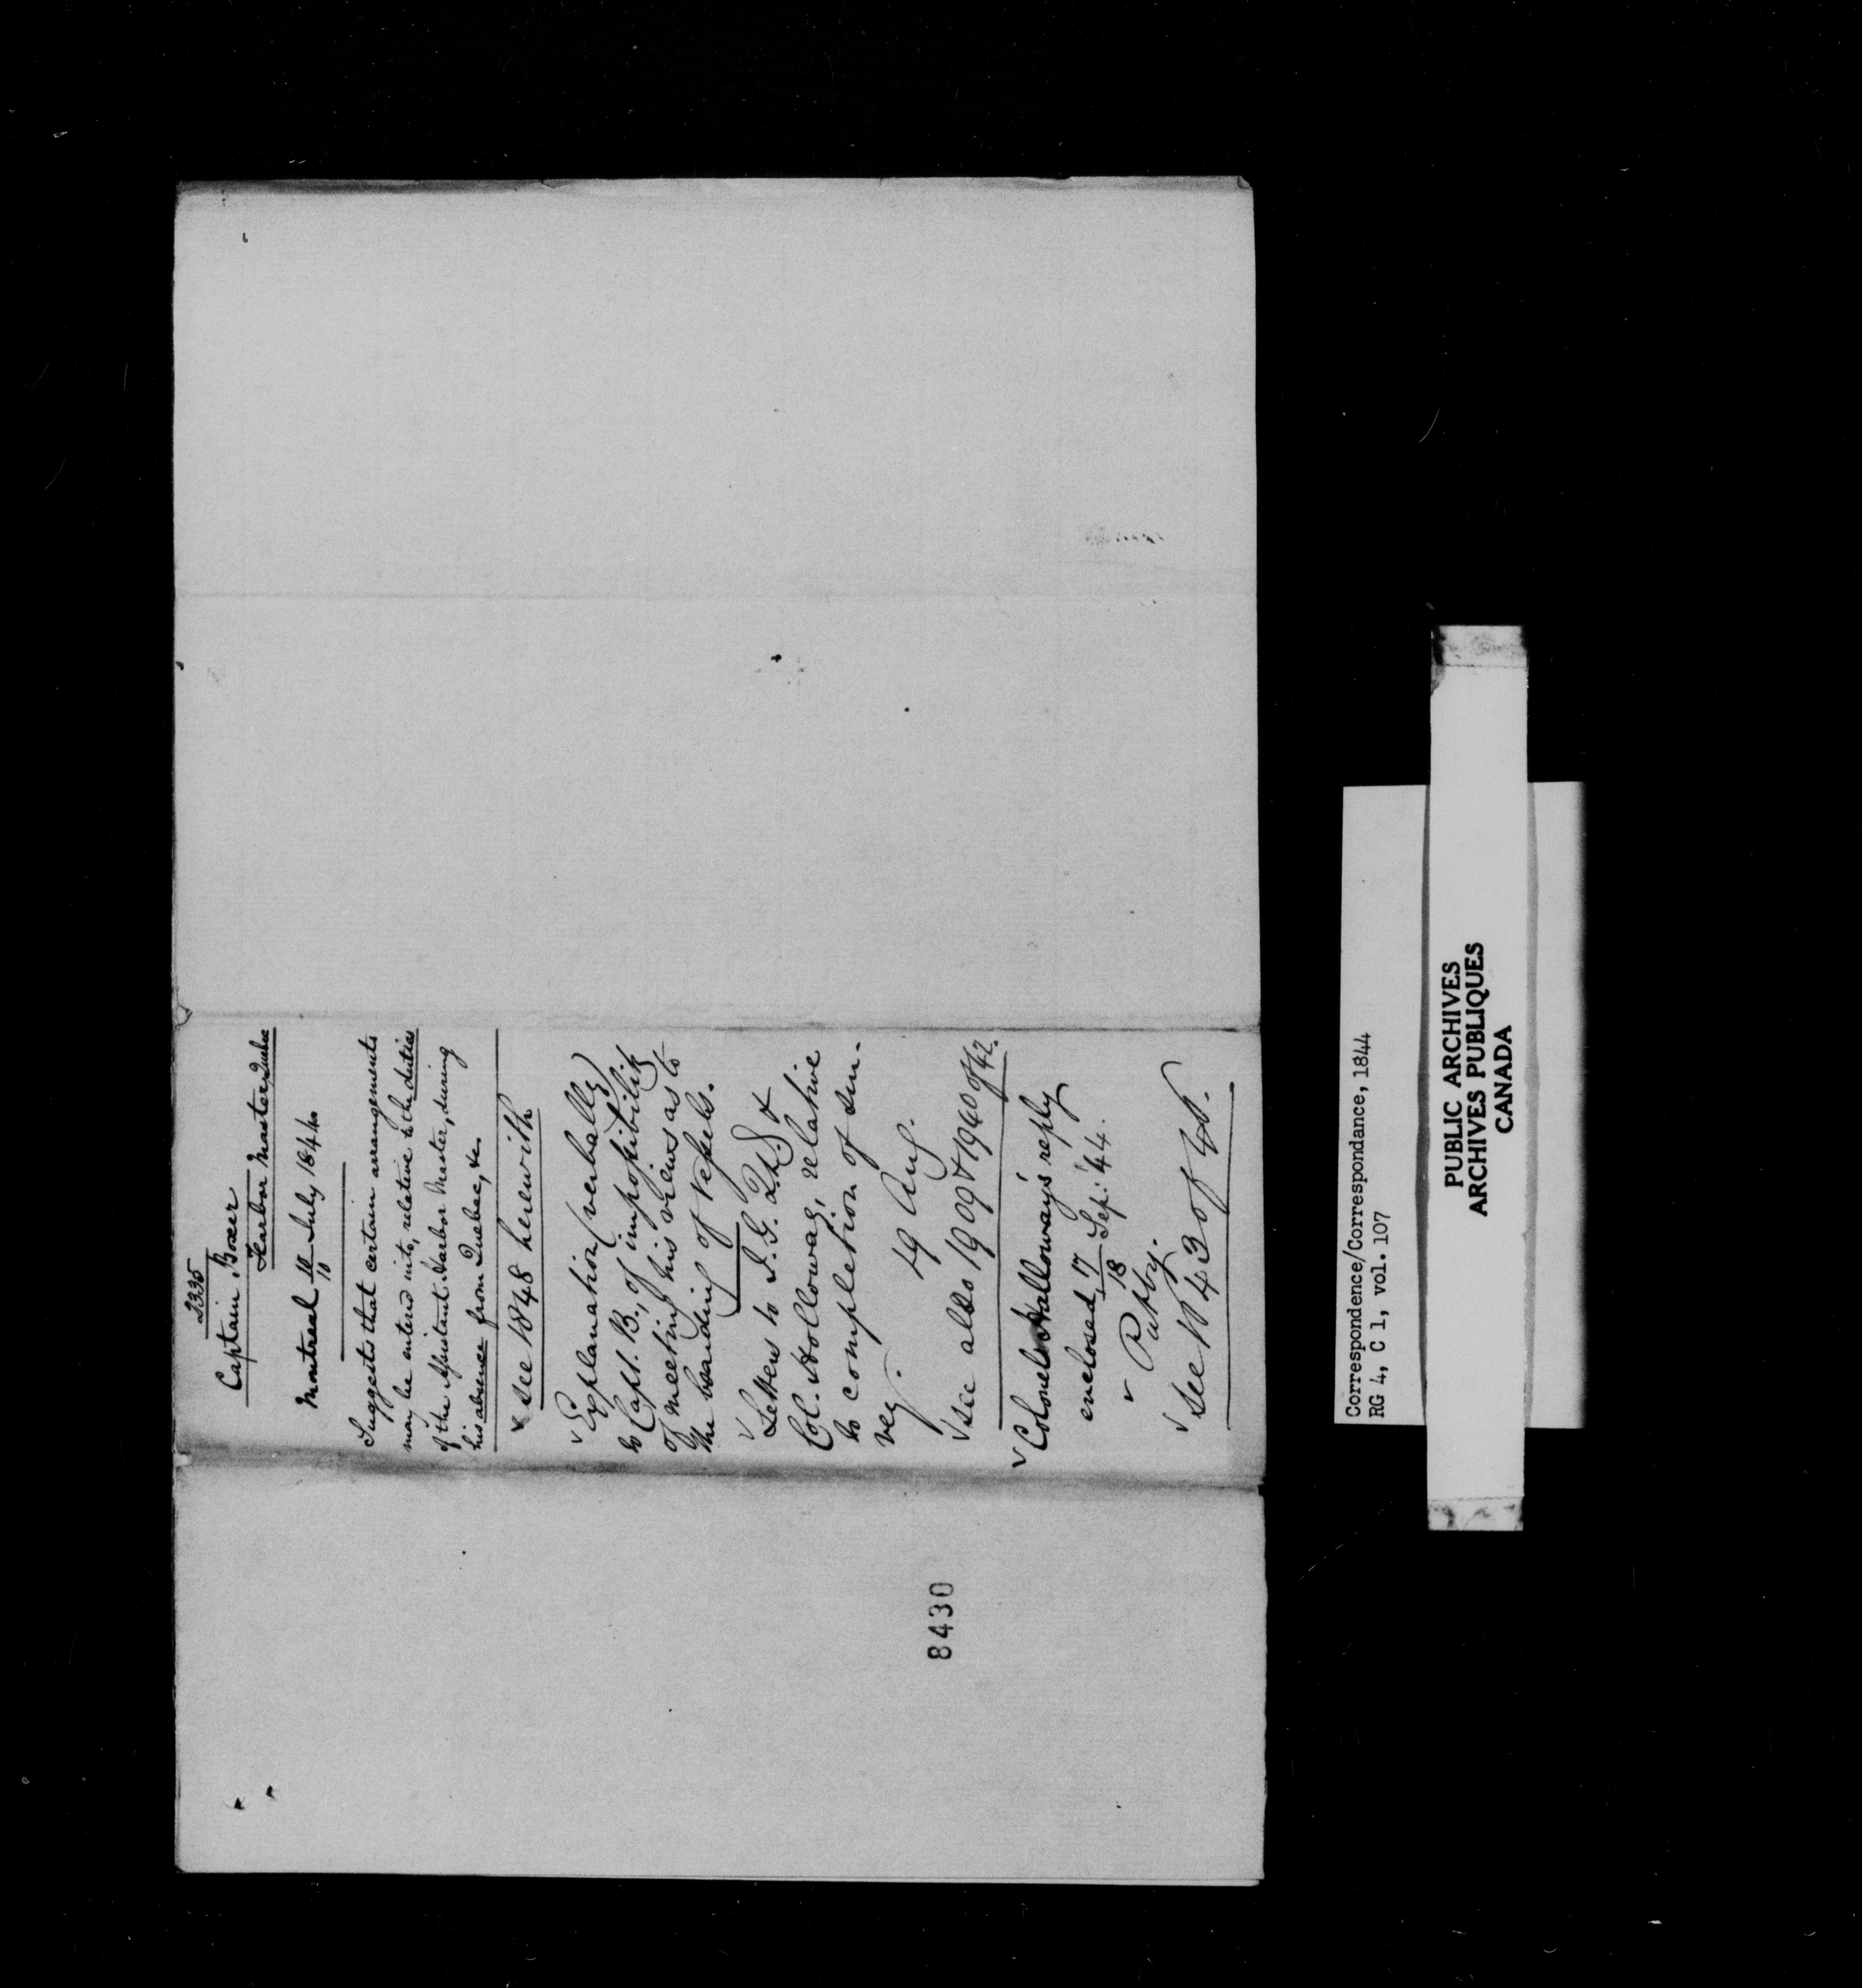 2335
Captain Boxer
Harbor Master, Quebec
Montreal 10/10 July 1844
Suggests that certain arrangements
may be entered into, relative to the duties
of the Assistant Harbor Master, during
his absence from Quebec, &c.
see 1848 herewith
Explanation (verbally)
to Capt. B., of impossibility
of meeting his views as to
the boarding of Vessels.
Letters to I. G. &
Col. Holloway, relative
to completion of sur-
vey. 19 Aug.
see also 1909 & 1940 of 42.
Colonel Holloway's reply
enclosed 17/18 Sep: '44.
see 43 of 45.
8430
Correspondence/Correspondance, 1844
RG 4, C 1, vol. 107
PUBLIC ARCHIVES
ARCHIVES PUBLIQUES
CANADA